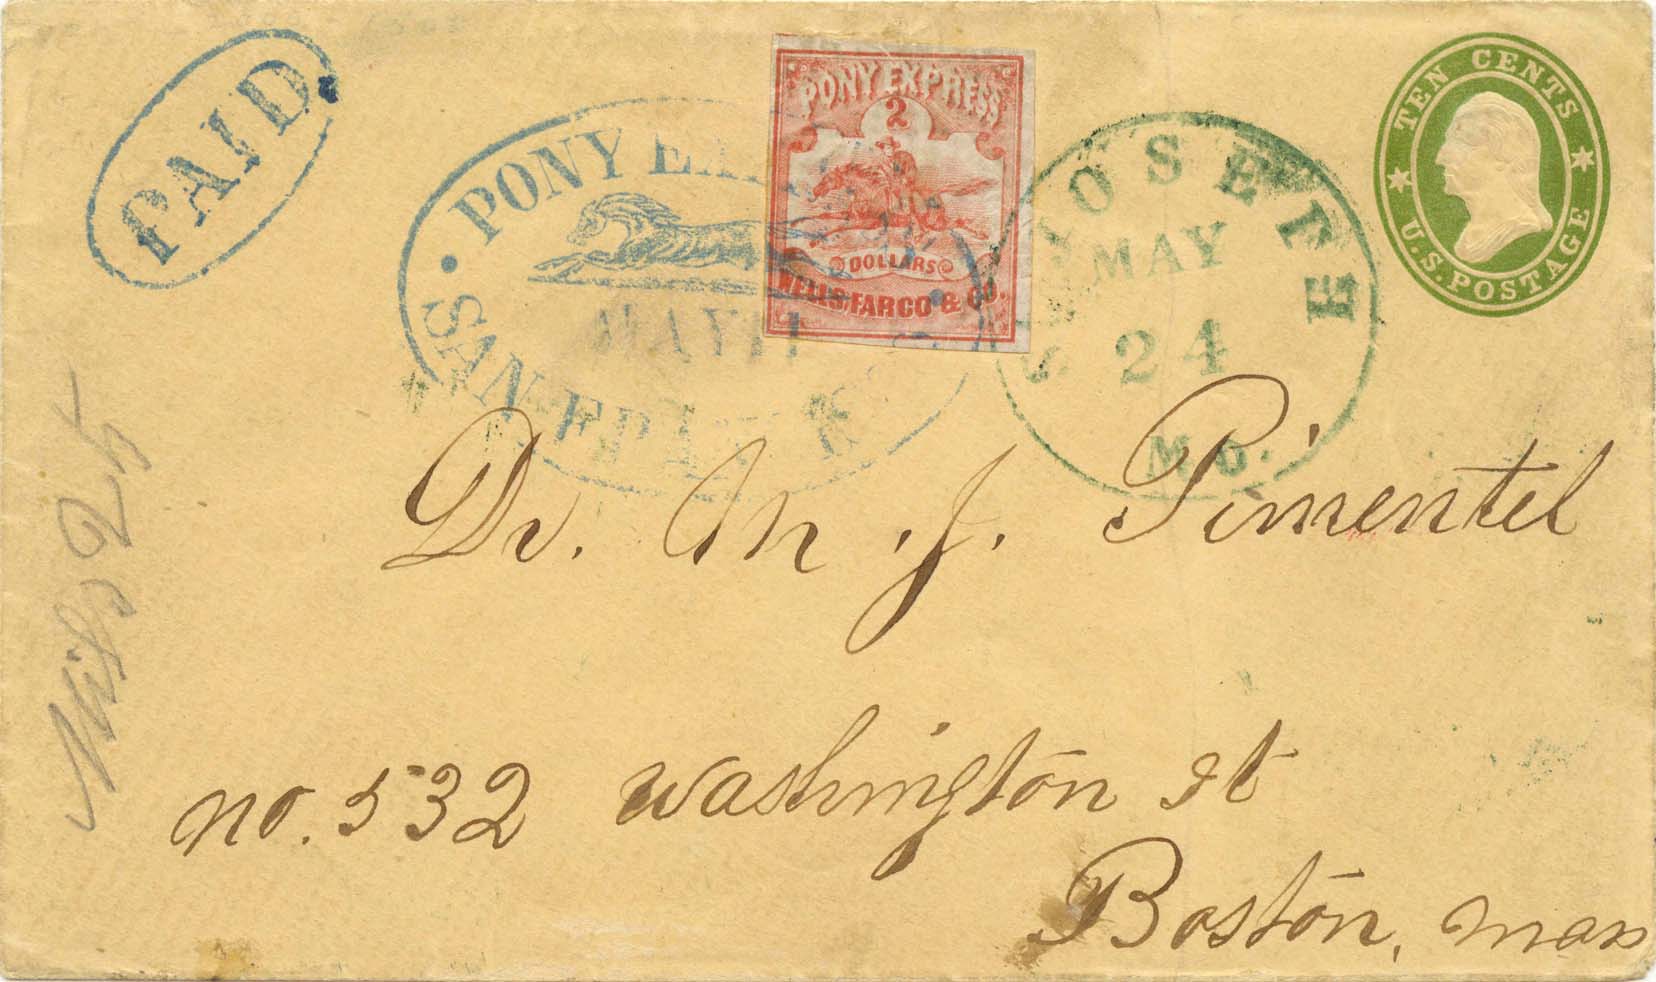 PAID
PONY
SAN FRAN
MAY 11
PONY EXPRESS
2
DOLLARS
WELLS, FARGO & CO.
JOSEPH
MAY
24
Mo.
TEN CENTS
U.S. POSTAGE
Dr. M. J. Pimentel
no. 532 Washington st
Boston, Mass